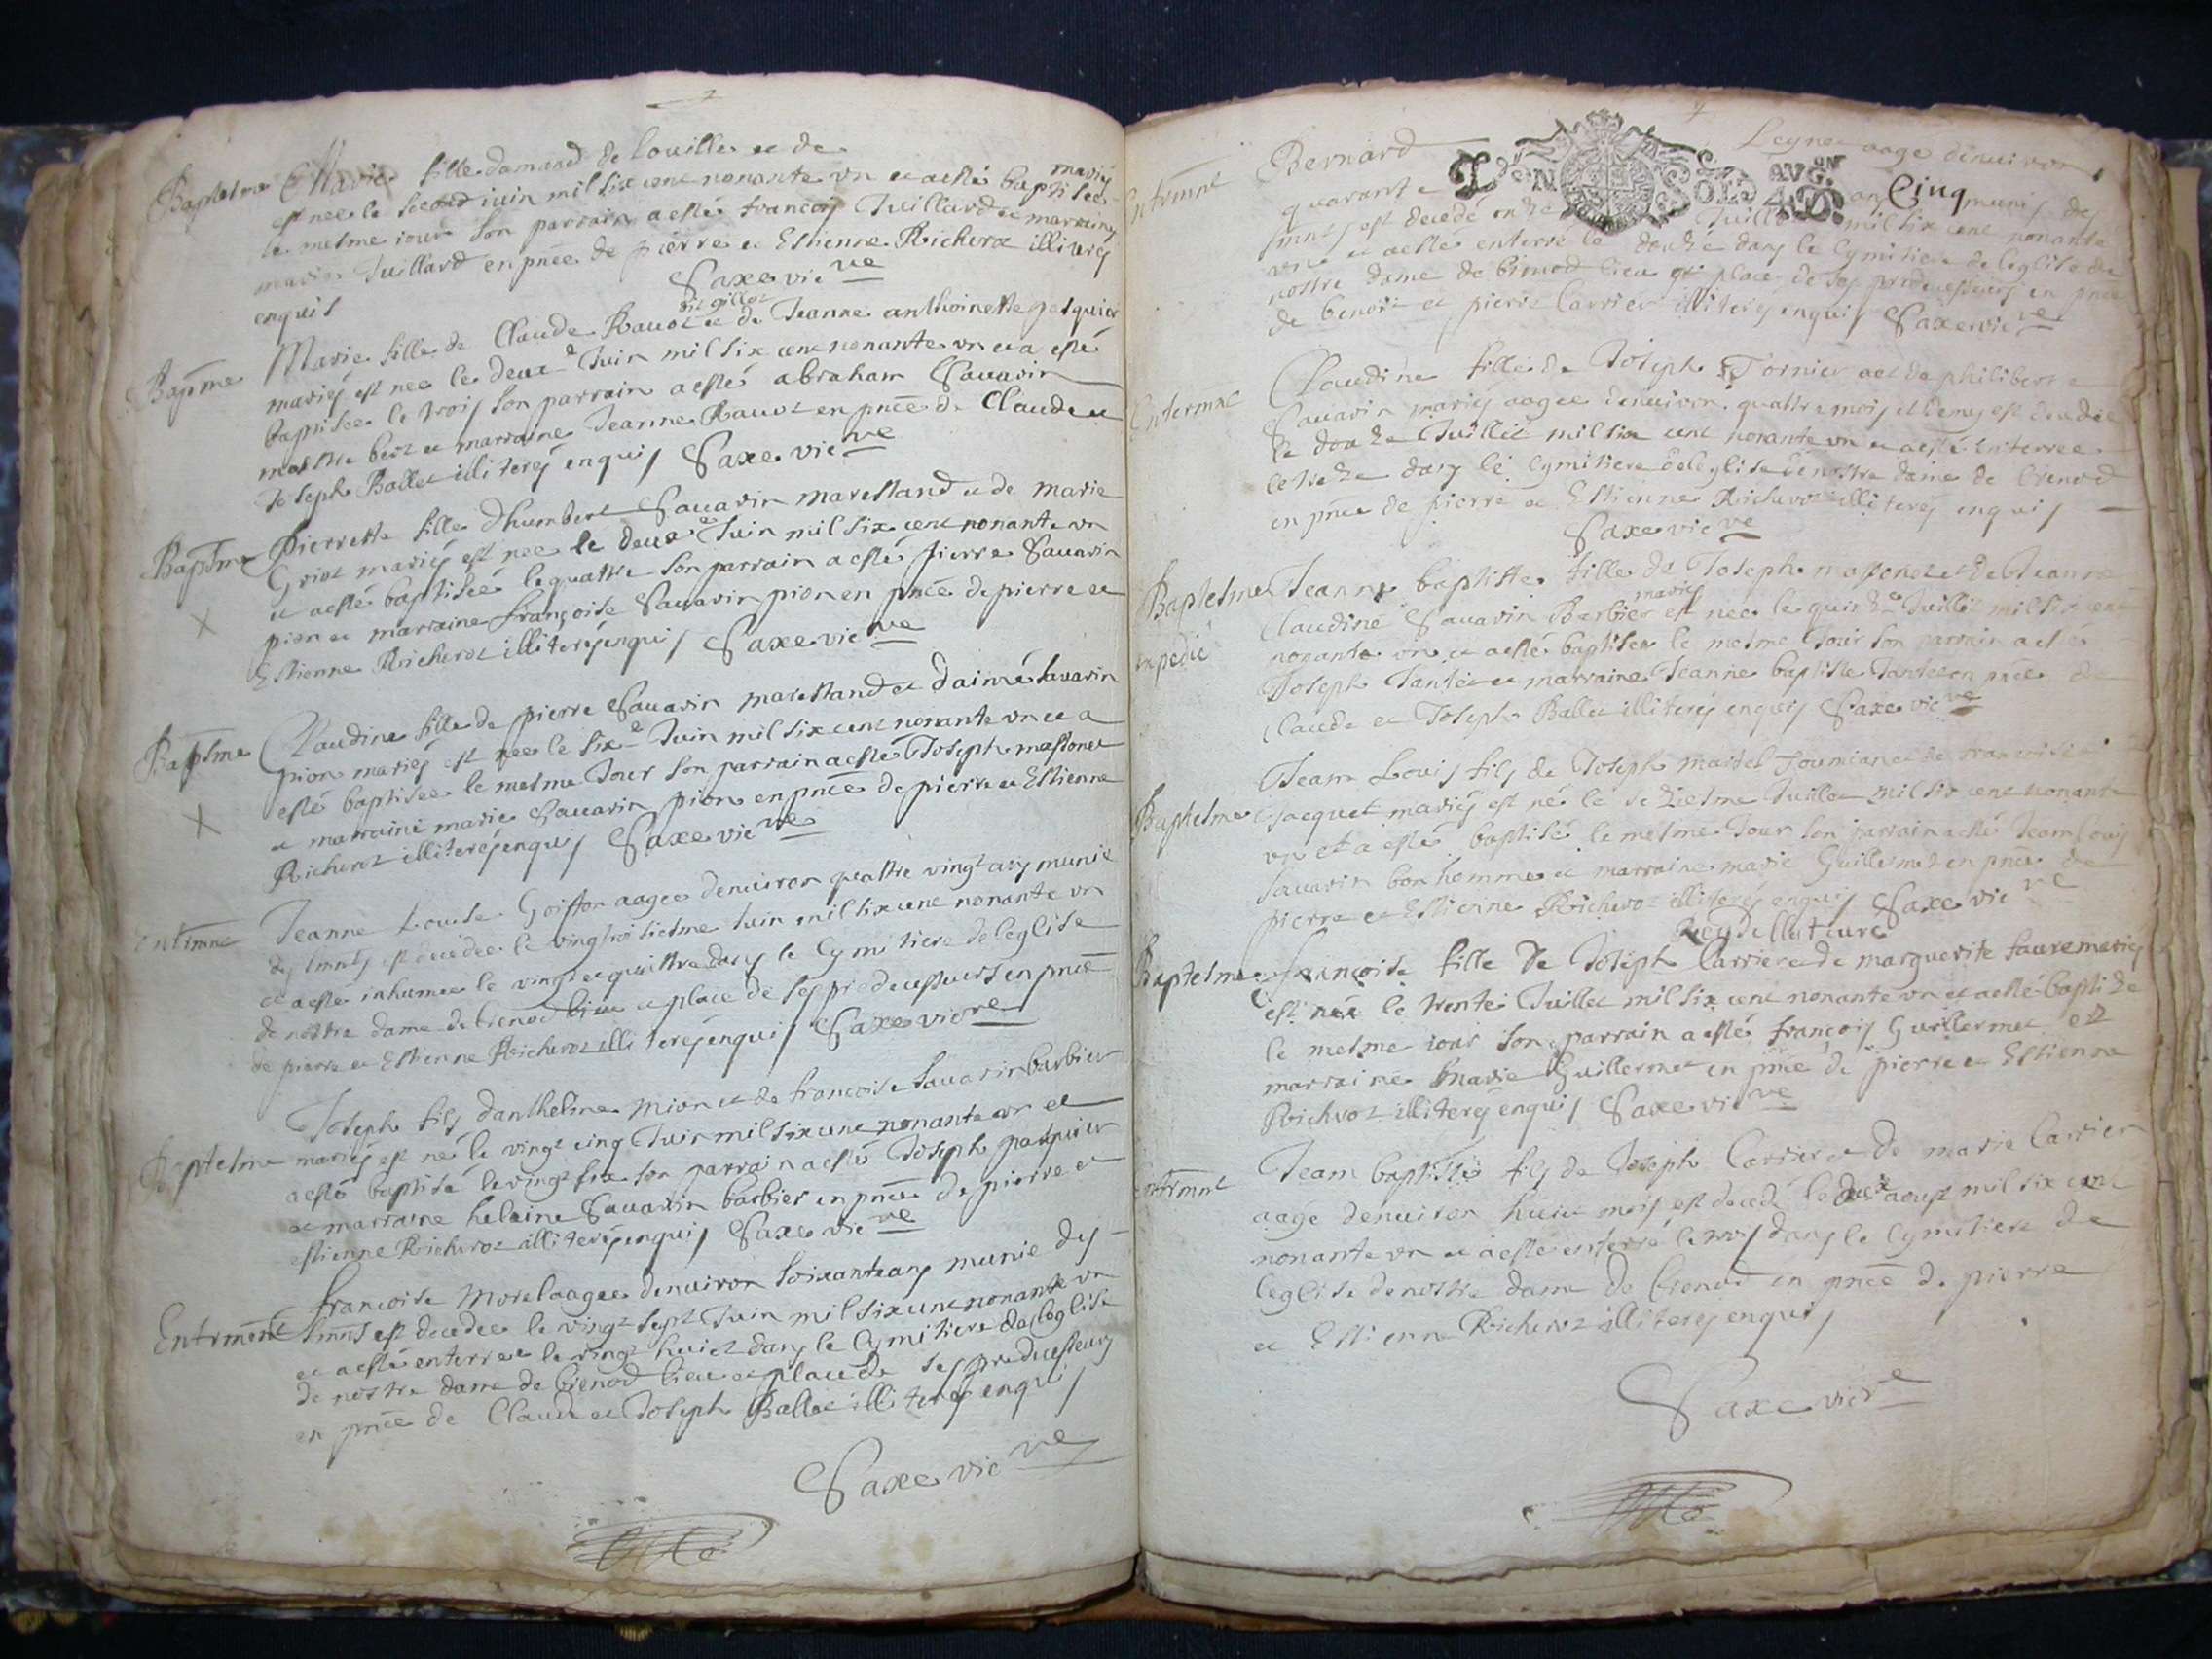 Baptesme Marie fille damand de louille et de
mariés
est nee le second iuin mil six cent nonante vn et a esté baptisee
le mesme iour Son parrain a esté francois Juillard et marraine
marie Juillard en pnce de pierre et Estienne Richerot illiterés
enquis Saxe vic re
Baptme Marie fille de Claude Rauot dit gillot et de Jeanne anthoinette pasquier
mariés est nee le deux e Juin mil six cent nonante vn et a esté
baptisee le trois son parrain a esté abraham Sauarin
et marraine Jeanne Rauot en pnce de Claude et
Joseph Ballet illiterés enquis Saxe vic re
Baptme Pierrette fille dhumbert Sauarin marestand et de marie
Griot mariés est nee le deux e Juin mil six cent nonante vn
et a esté baptisée le quattre Son parrain a esté pierre Sauarin
pion et marraine françoise Sauarin pion en pnce de pierre et
Estienne Richerot illiterés enquis Saxe vic re
Baptme Claudine fille de pierre Sauarin marestand et daimé sauarin
pion mariés est nee le six e Juin mil six cent nonante vn et a
esté baptisee le mesme Jour Son parrain a esté Joseph massonet
et marraine marie Sauarin pion en pnce de pierre et Estienne
Richerot illiterés enquis Saxe vic re
Entrmnt Jeanne Louise Goiffon aagee denuiron quattre vingt ans munie
des smnts est decedee le vingt troisiesme Juin mil six cent nonante vn
et a esté inhumee le vingt et quattre dans le Cymitiere de leglise
de nostre dame de brenod lieu et place de ses predecesseurs en pnce
de pierre et Estienne Richerot illiterés enquis Saxe vic re
Joseph fils danthelme Mion et de francoise Sauarin barbier
Baptesme mariés est né le vingt cinq Juin mil six cent nonante vn et
a esté baptisé le vingt six son parrain a esté Joseph pasquier
et marraine helaine Sauarin barbier en pnce de pierre et
estienne Richerot illiterés enquis Saxe vic re
francoise Morel aagee denuiron soixante ans munie des
Entrment smnts est decedee le vingt sept Juin mil six cent nonante vn
et a esté enterree le vingt huict dans le Cymitiere de leglise
de nostre dame de brenod lieu et place de ses predecesseurs
en pnce de Claude et Joseph Ballet illiterés enquis
Saxe vic re
Entrmnt Bernard Leyne aage denuiron
quarante cinq ans munis des
GEN AVG. ON
SOLS 4.D.
smnts est decedé onze Juillet mil six cent nonante
vn et a esté enterré le douze dans le Cymitiere de leglise de
nostre dame de brenod lieu et place de ses predecesseurs en pnce
de benoit et pierre Carrier illiterés enquis Saxe vic re
Entermnt Claudine fille de Joseph Tornier et de philiberte
Sauarin mariés aagee denuiron quattre mois et demy est decedee
le douze Juillet mil six cent nonante vn et a esté enterree
le treze dans le Cymitiere de leglise de nostre dame de brenod
en pnce de pierre et Estienne Richerot illiterés enquis
Saxe vic re
Baptesme Jeanne baptiste fille de Joseph massonet et de Jeanne
Claudine Sauarin Barbier mariés est nee le quinze Juillet mil six cent
expedié nonante vn et a esté baptisee le mesme Jour son parrain a esté
Joseph Tantet et marraine Jeanne baptiste Tantet en pnce de
Claude et Joseph Ballet illiterés enquis Saxe vic re
Jean Louis fils de Joseph martel et de francoise
Baptesme Jacquet mariés est né le seziesme Juillet mil six cent nonante
vn et a esté baptisé le mesme Jour son parrain a esté Jean louis
Sauarin bon homme et marraine marie Guillermet en pnce de
pierre et Estienne Richerot illiterés enquis Saxe vic re
Reydellet cure
Baptesme françoise fille de Joseph Carrier et de marguerite faure mariés
est née le trente Juillet mil six cent nonante vn et a esté baptizé
le mesme iour son parrain a esté françois Guillermet et
marraine Marie Guillermet en pnce de pierre et Estienne
Richerot illiterés enquis Saxe vic re
Jean baptiste fils de Joseph Carrier et de marie Carrier
Entermnt aage denuiron huict mois est decedé le deux aoust mil six cent
nonante vn et a esté enterré le trois dans le Cymitiere de
leglise de nostre dame de brenod en pnce de pierre
et Estienne Richerot illiterés enquis
Saxe vic re